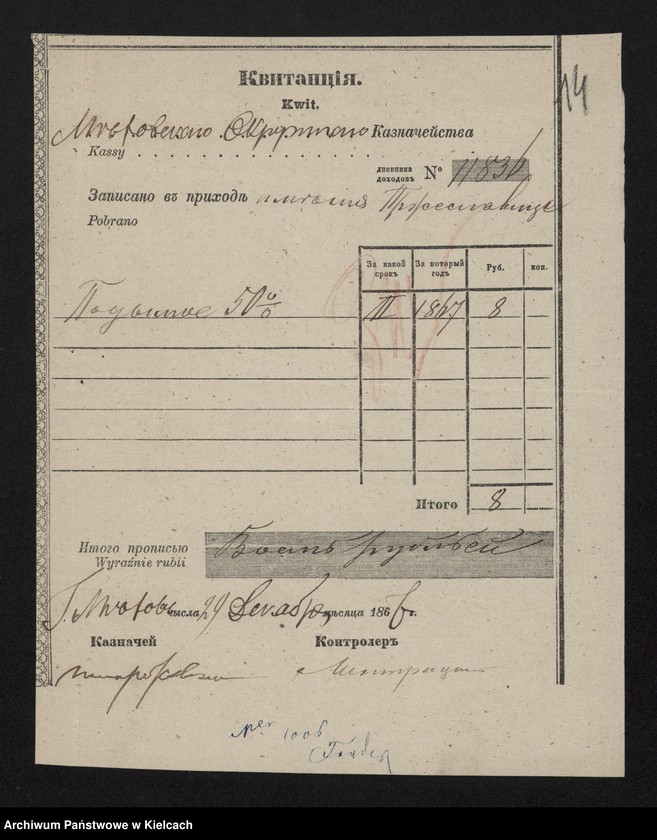 14
Квитанція.
Kwit.
Мѣховскаго Окружнаго Казначейства
Kassy
дневника
доходовъ № 11836
Записано въ приходъ имѣнія
Pobrano
За какой срокъ За который годъ Руб. коп.
Подымное 50% III 1867 8
Итого 8
Итого прописью Восемь рублей
Wyraźnie rubli
Г. Мѣховъ числа 29 Декабря мѣсяца 186 г.
Казначей Контролеръ
Ner 1006
Archiwum Państwowe w Kielcach